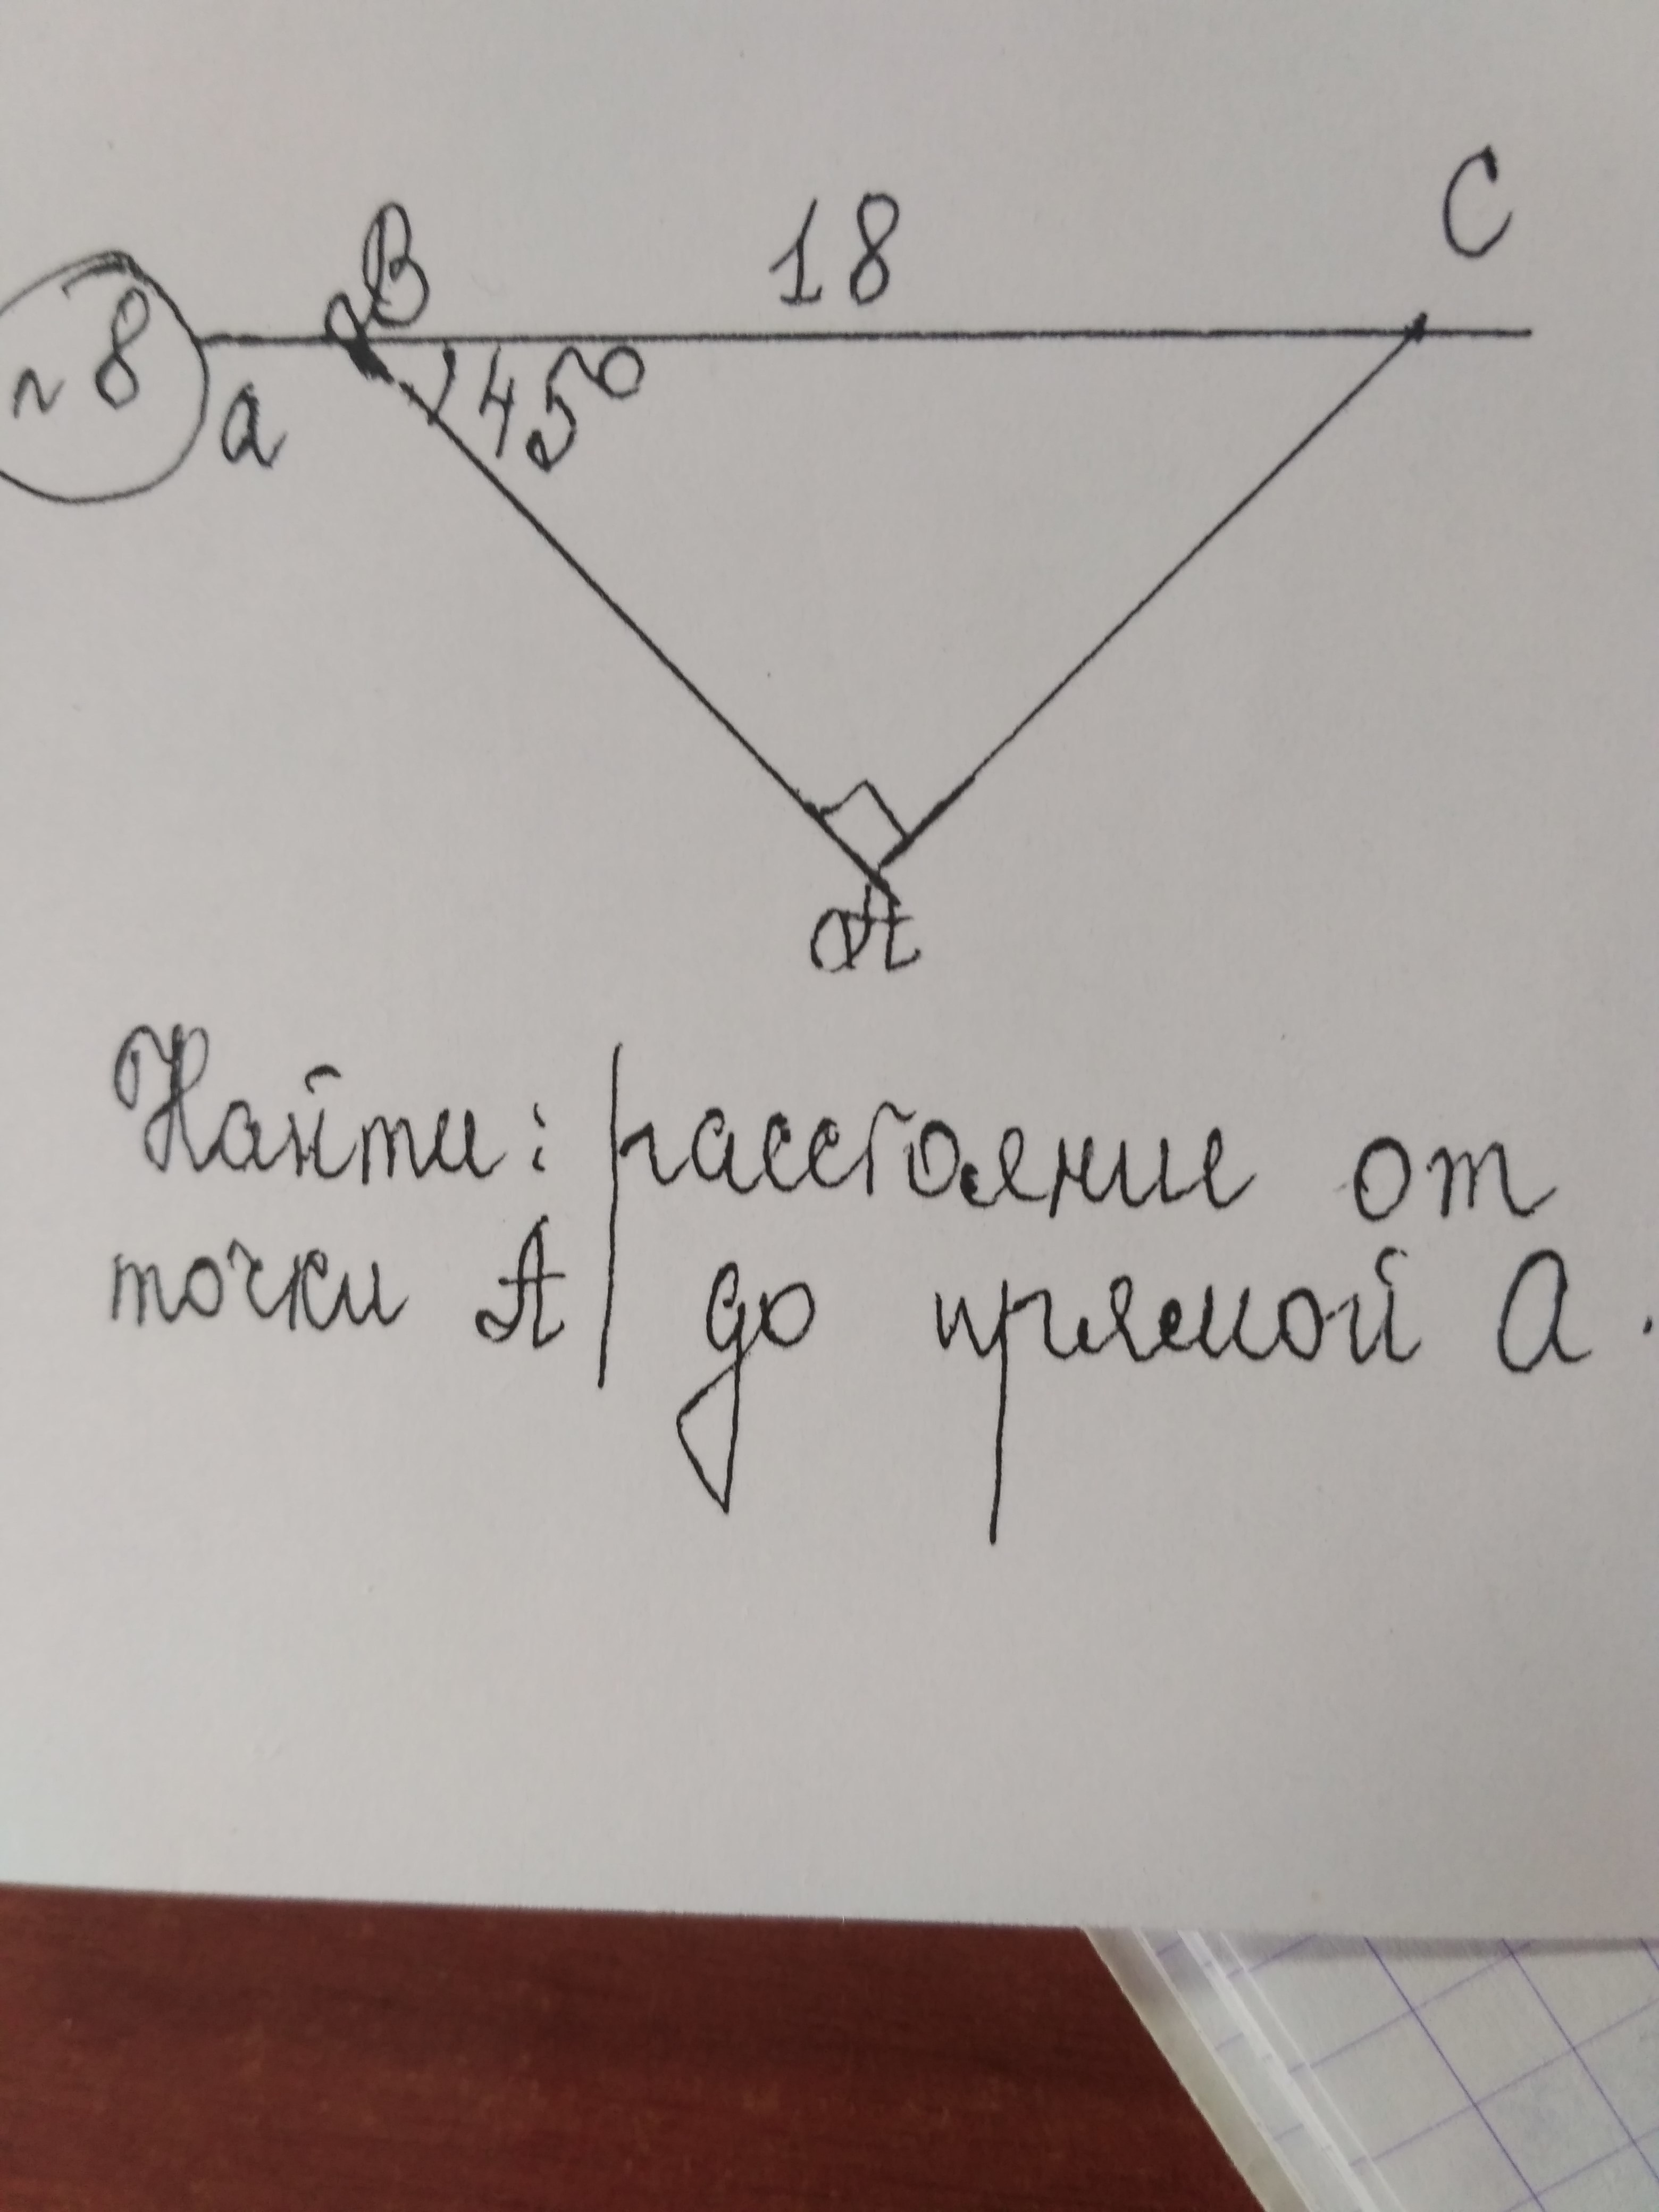 C
18
B
~8
45°
a
A
Найти: расстояние от
точки A до прямой a.